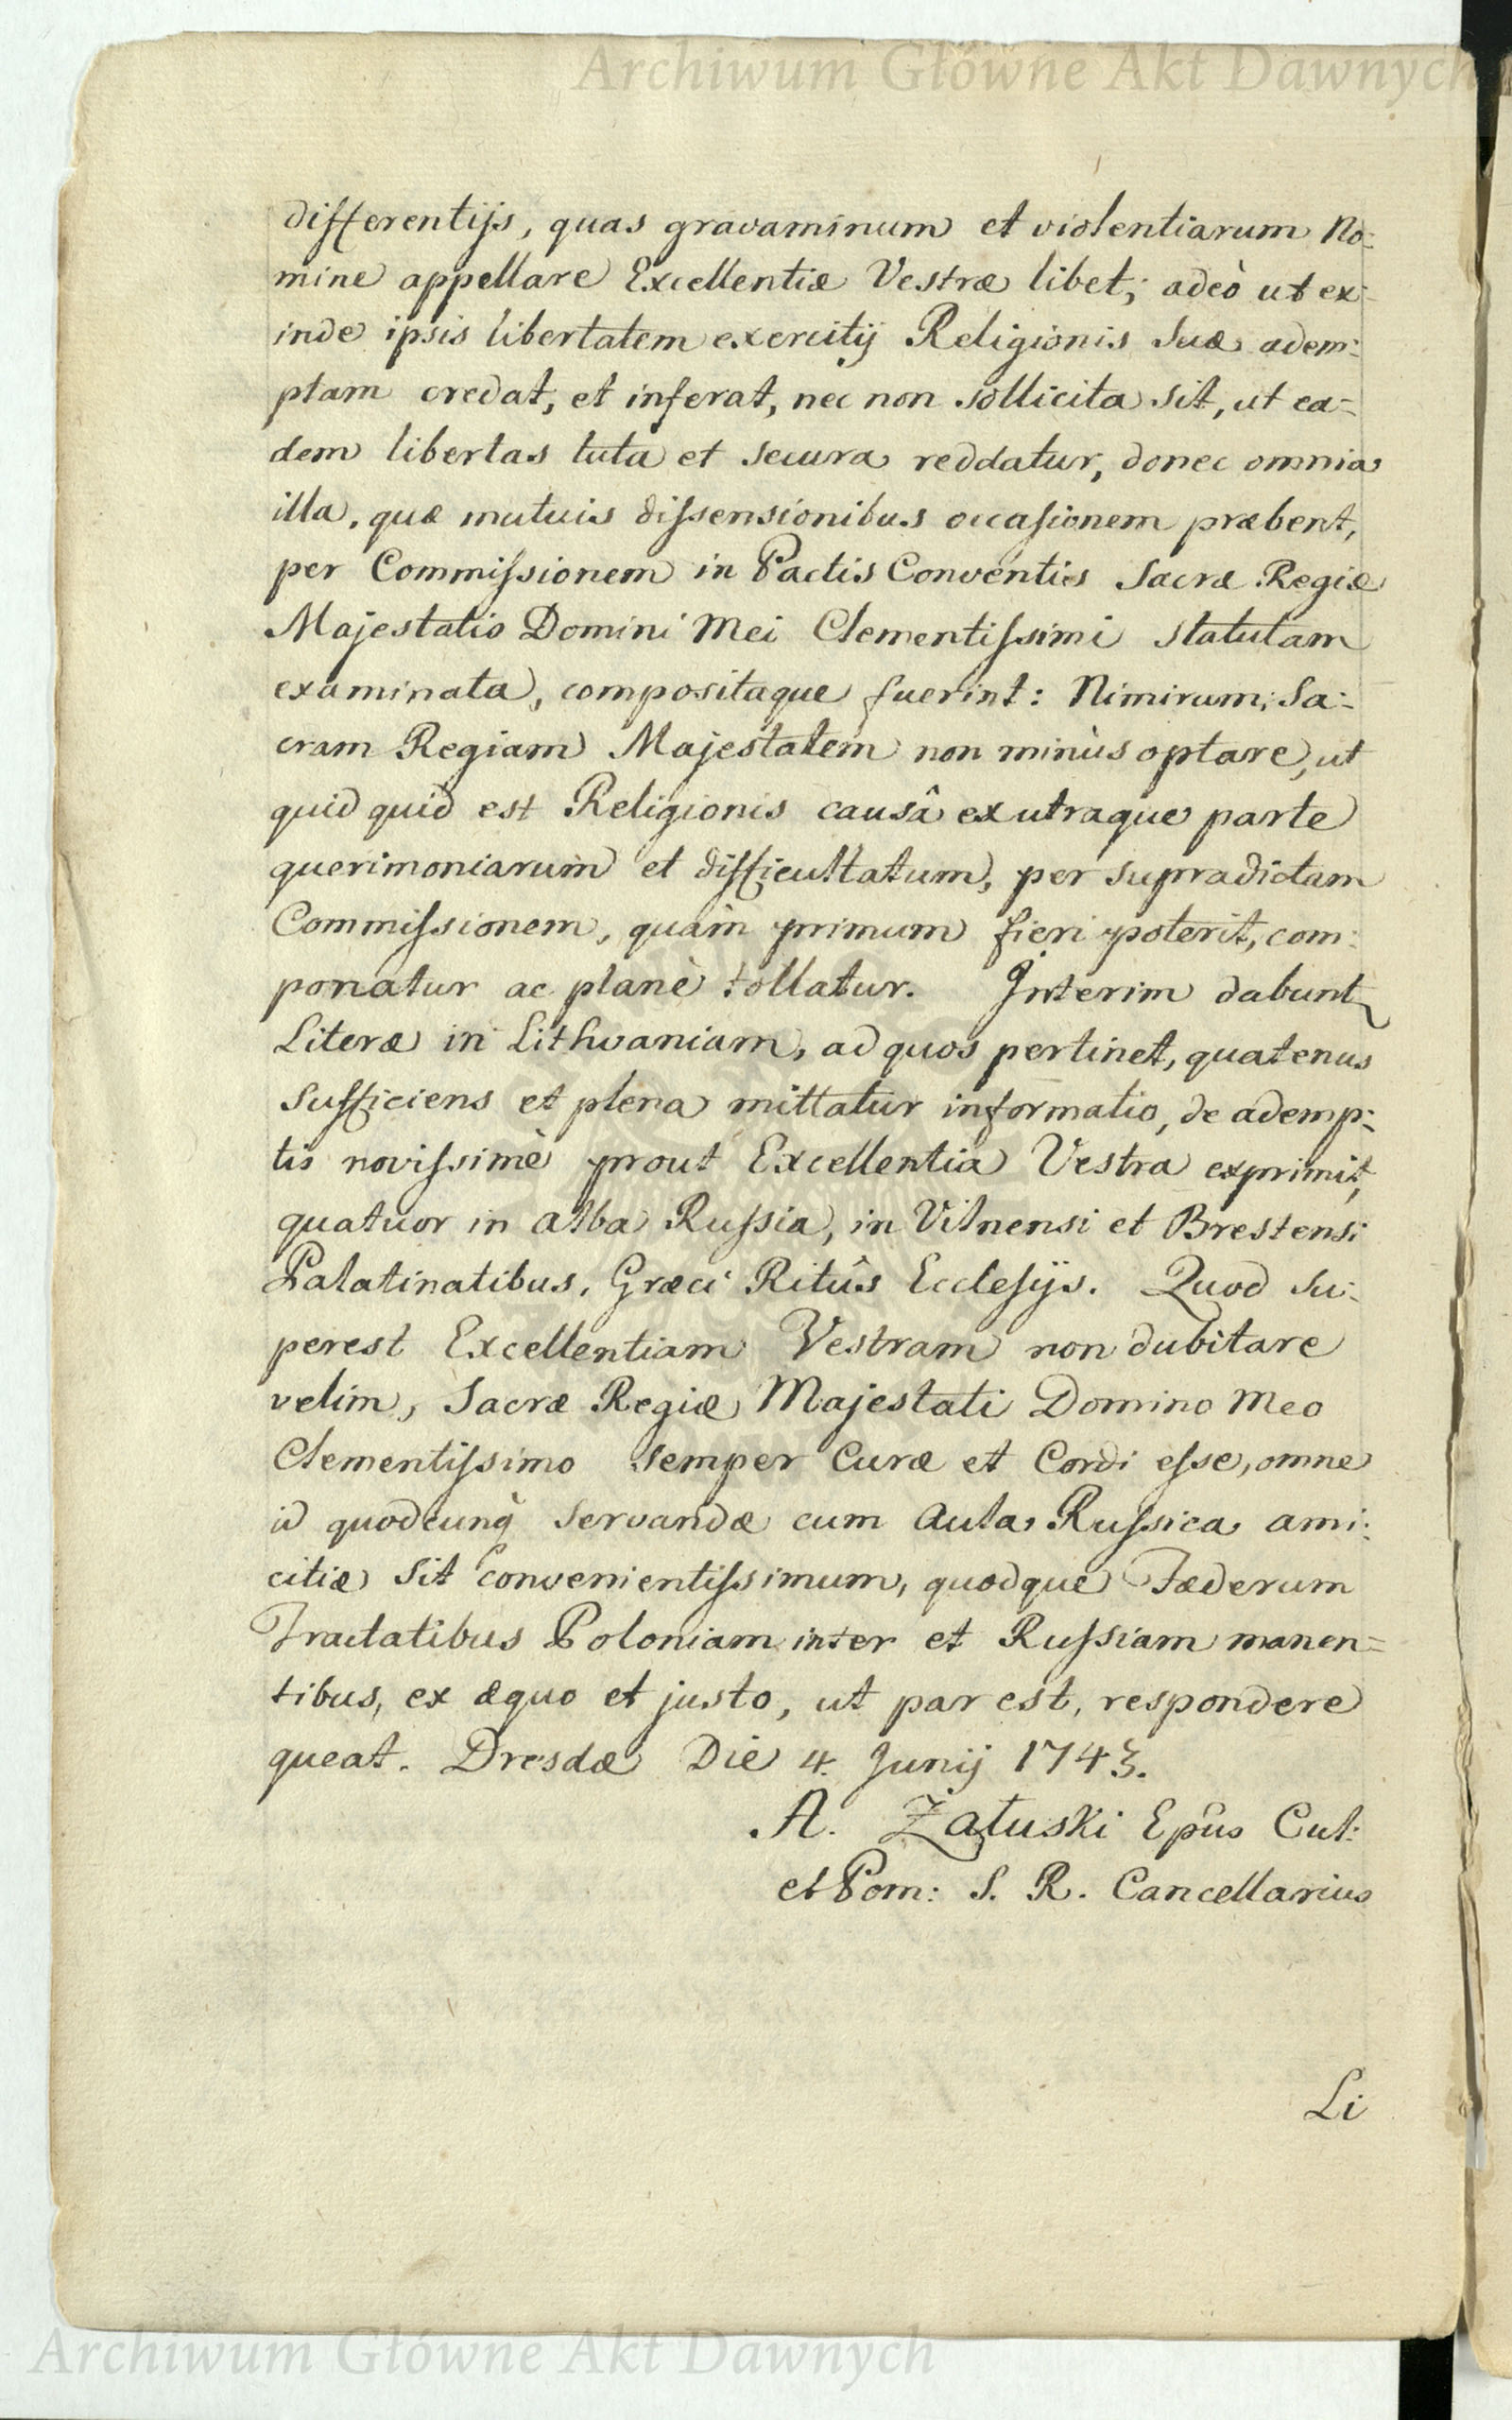 Archiwum Główne Akt Dawnych
differentijs, quas gravaminum et violentiarum No:
mine appellare Excellentiæ Vestræ libet; adeò ut ex:
inde ipsis libertatem exercitij Religionis Suæ adem:
ptam credat, et inferat, nec non sollicita sit, ut ea=
dem libertas tuta et secura reddatur, donec omnia
illa, quæ mutuis diſsensionibus occaſionem præbent,
per Commiſsionem in Pactis Conventis Sacræ Regiæ
Majestatis Domini Mei Clementiſsimi statutam
examinata, compositaque fuerint: Nimirum; Sa:
cram Regiam Majestatem non minùs optare, ut
quid quid est Religionis causâ ex utraque parte
querimoniarum et difficultatum, per supradictam
Commiſsionem, quàm primum fieri poterit, com:
ponatur ac planè tollatur. Interim dabunt
Literæ in Lithvaniam, ad quos pertinet, quatenus
sufficiens et plena mittatur informatio, de ademp:
tis noviſsimè prout Excellentia Vestra exprimit,
quatuor in alba Ruſsia, in Vilnensi et Brestensi
Palatinatibus, Græci Ritûs Eccleſijs. Quod Su:
perest Excellentiam Vestram non dubitare
velim, Sacræ Regiæ Majestati Domino Meo
Clementiſsimo semper Curæ et Cordi eſse, omne
id quodcunq̀ servandæ cum Aula Ruſsica ami:
citiæ sit convenientiſsimum, quodque Fæderum
Tractatibus Poloniam inter et Ruſsiam manen=
tibus, ex æquo et justo, ut par est, respondere
queat. Dresdæ Die 4. Junij 1743.
A. Załuski Epûs Cul:
et Pom: S. R. Cancellarius
Li
Archiwum Główne Akt Dawnych